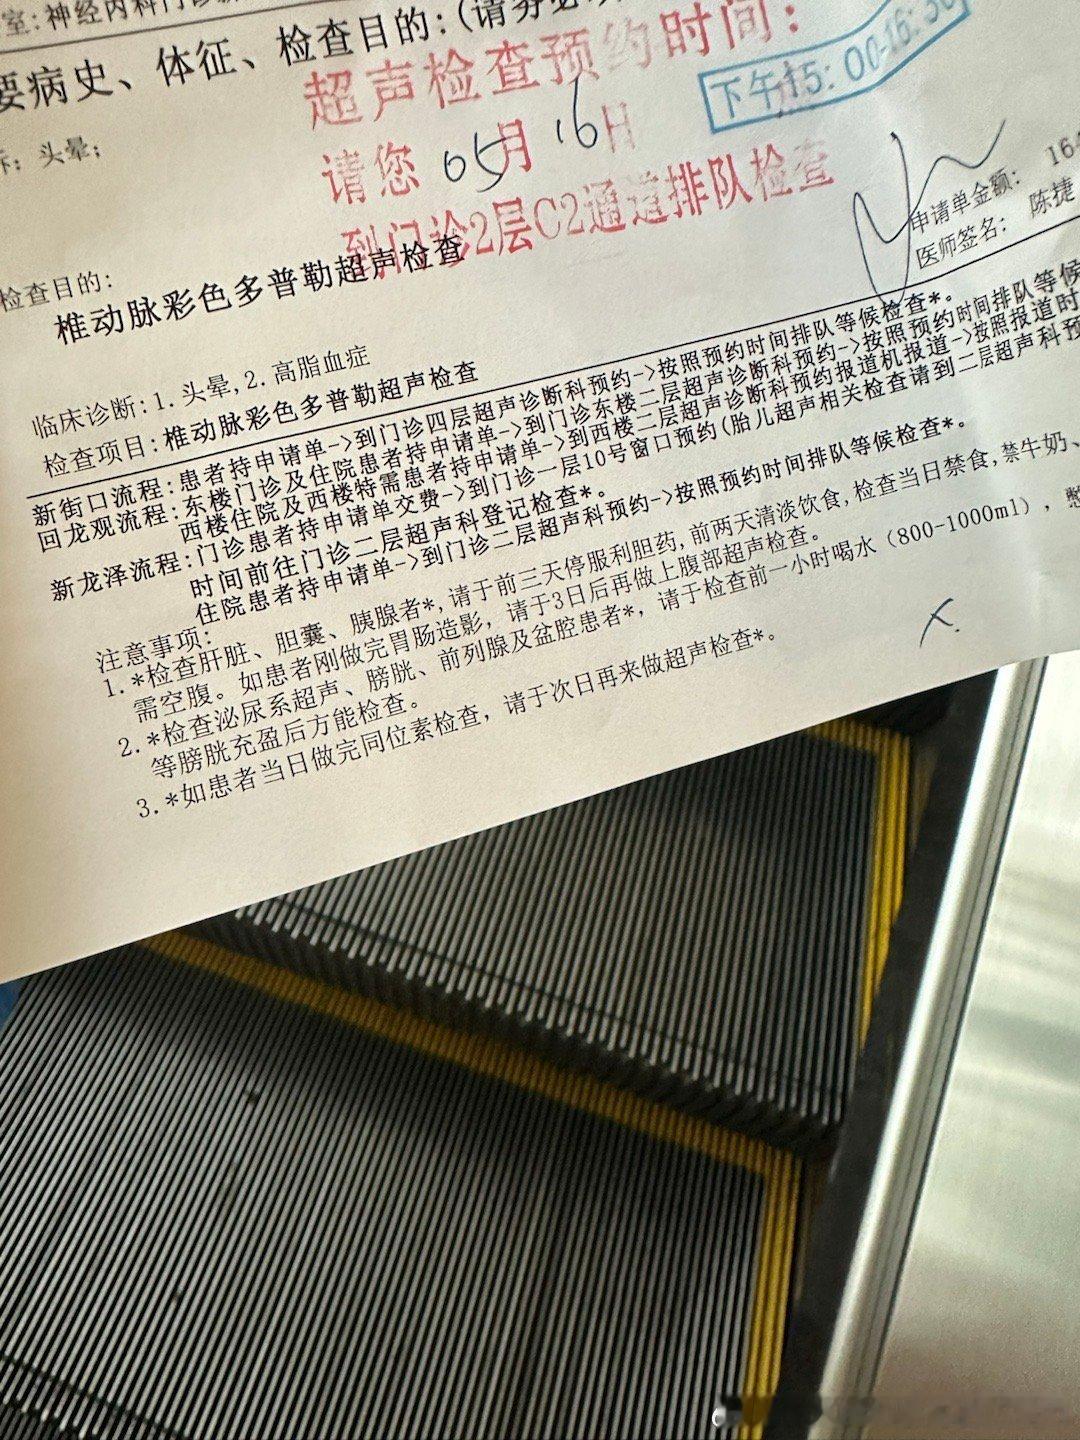 室:神经内科门诊
要病史、体征、检查目的:(请务必
超声检查预约时间:
下午15:00-16:30
诉:头晕;
请您 05月 16日
到门诊2层C2通道排队检查
申请单金额: 164
医师签名: 陈捷
检查目的:
椎动脉彩色多普勒超声检查
临床诊断:1.头晕,2.高脂血症
检查项目:椎动脉彩色多普勒超声检查
新街口流程:患者持申请单->到门诊四层超声诊断科预约->按照预约时间排队等候检查*。
回龙观流程:东楼门诊及住院患者持申请单->到门诊东楼二层超声诊断科预约->按照预约时间排队等候
西楼住院及西楼特需患者持申请单->到西楼二层超声诊断科预约报道机报道->按照报道时
新龙泽流程:门诊患者持申请单交费->到门诊一层10号窗口预约(胎儿超声相关检查请到二层超声科预
时间前往门诊二层超声科登记检查*。
住院患者持申请单->到门诊二层超声科预约->按照预约时间排队等候检查*。
注意事项:
1.*检查肝脏、胆囊、胰腺者*,请于前三天停服利胆药,前两天清淡饮食,检查当日禁食,禁牛奶、
需空腹。如患者刚做完胃肠造影,请于3日后再做上腹部超声检查。
2.*检查泌尿系超声、膀胱、前列腺及盆腔患者*,请于检查前一小时喝水(800-1000ml),憋
等膀胱充盈后方能检查。
3.*如患者当日做完同位素检查,请于次日再来做超声检查*。